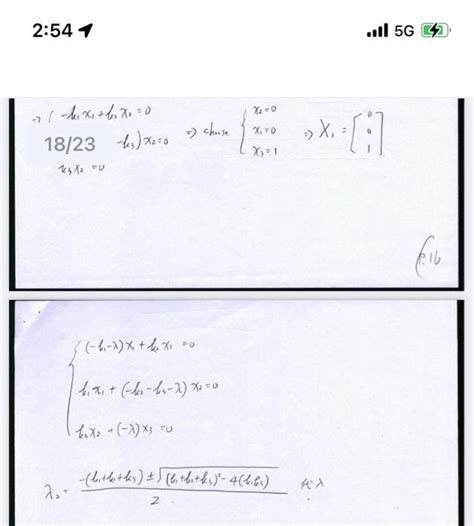 2:54 5G
⇒ { -k₁x₁ + k₂x₂ = 0
18/23 -k₃) x₂ = 0 ⇒ choose { x₂ = 0
x₁ = 0 ⇒ X₁ = [0 0 1]
x₃ = 1
k₃x₂ = 0
P.16
{ (-k₁-λ)x₁ + k₂x₂ = 0
k₁x₁ + (-k₂-k₃-λ)x₂ = 0
k₃x₂ + (-λ)x₃ = 0
λ₂ = -(k₁+k₂+k₃) ± √(k₁+k₂+k₃)² - 4(k₁k₃)
2